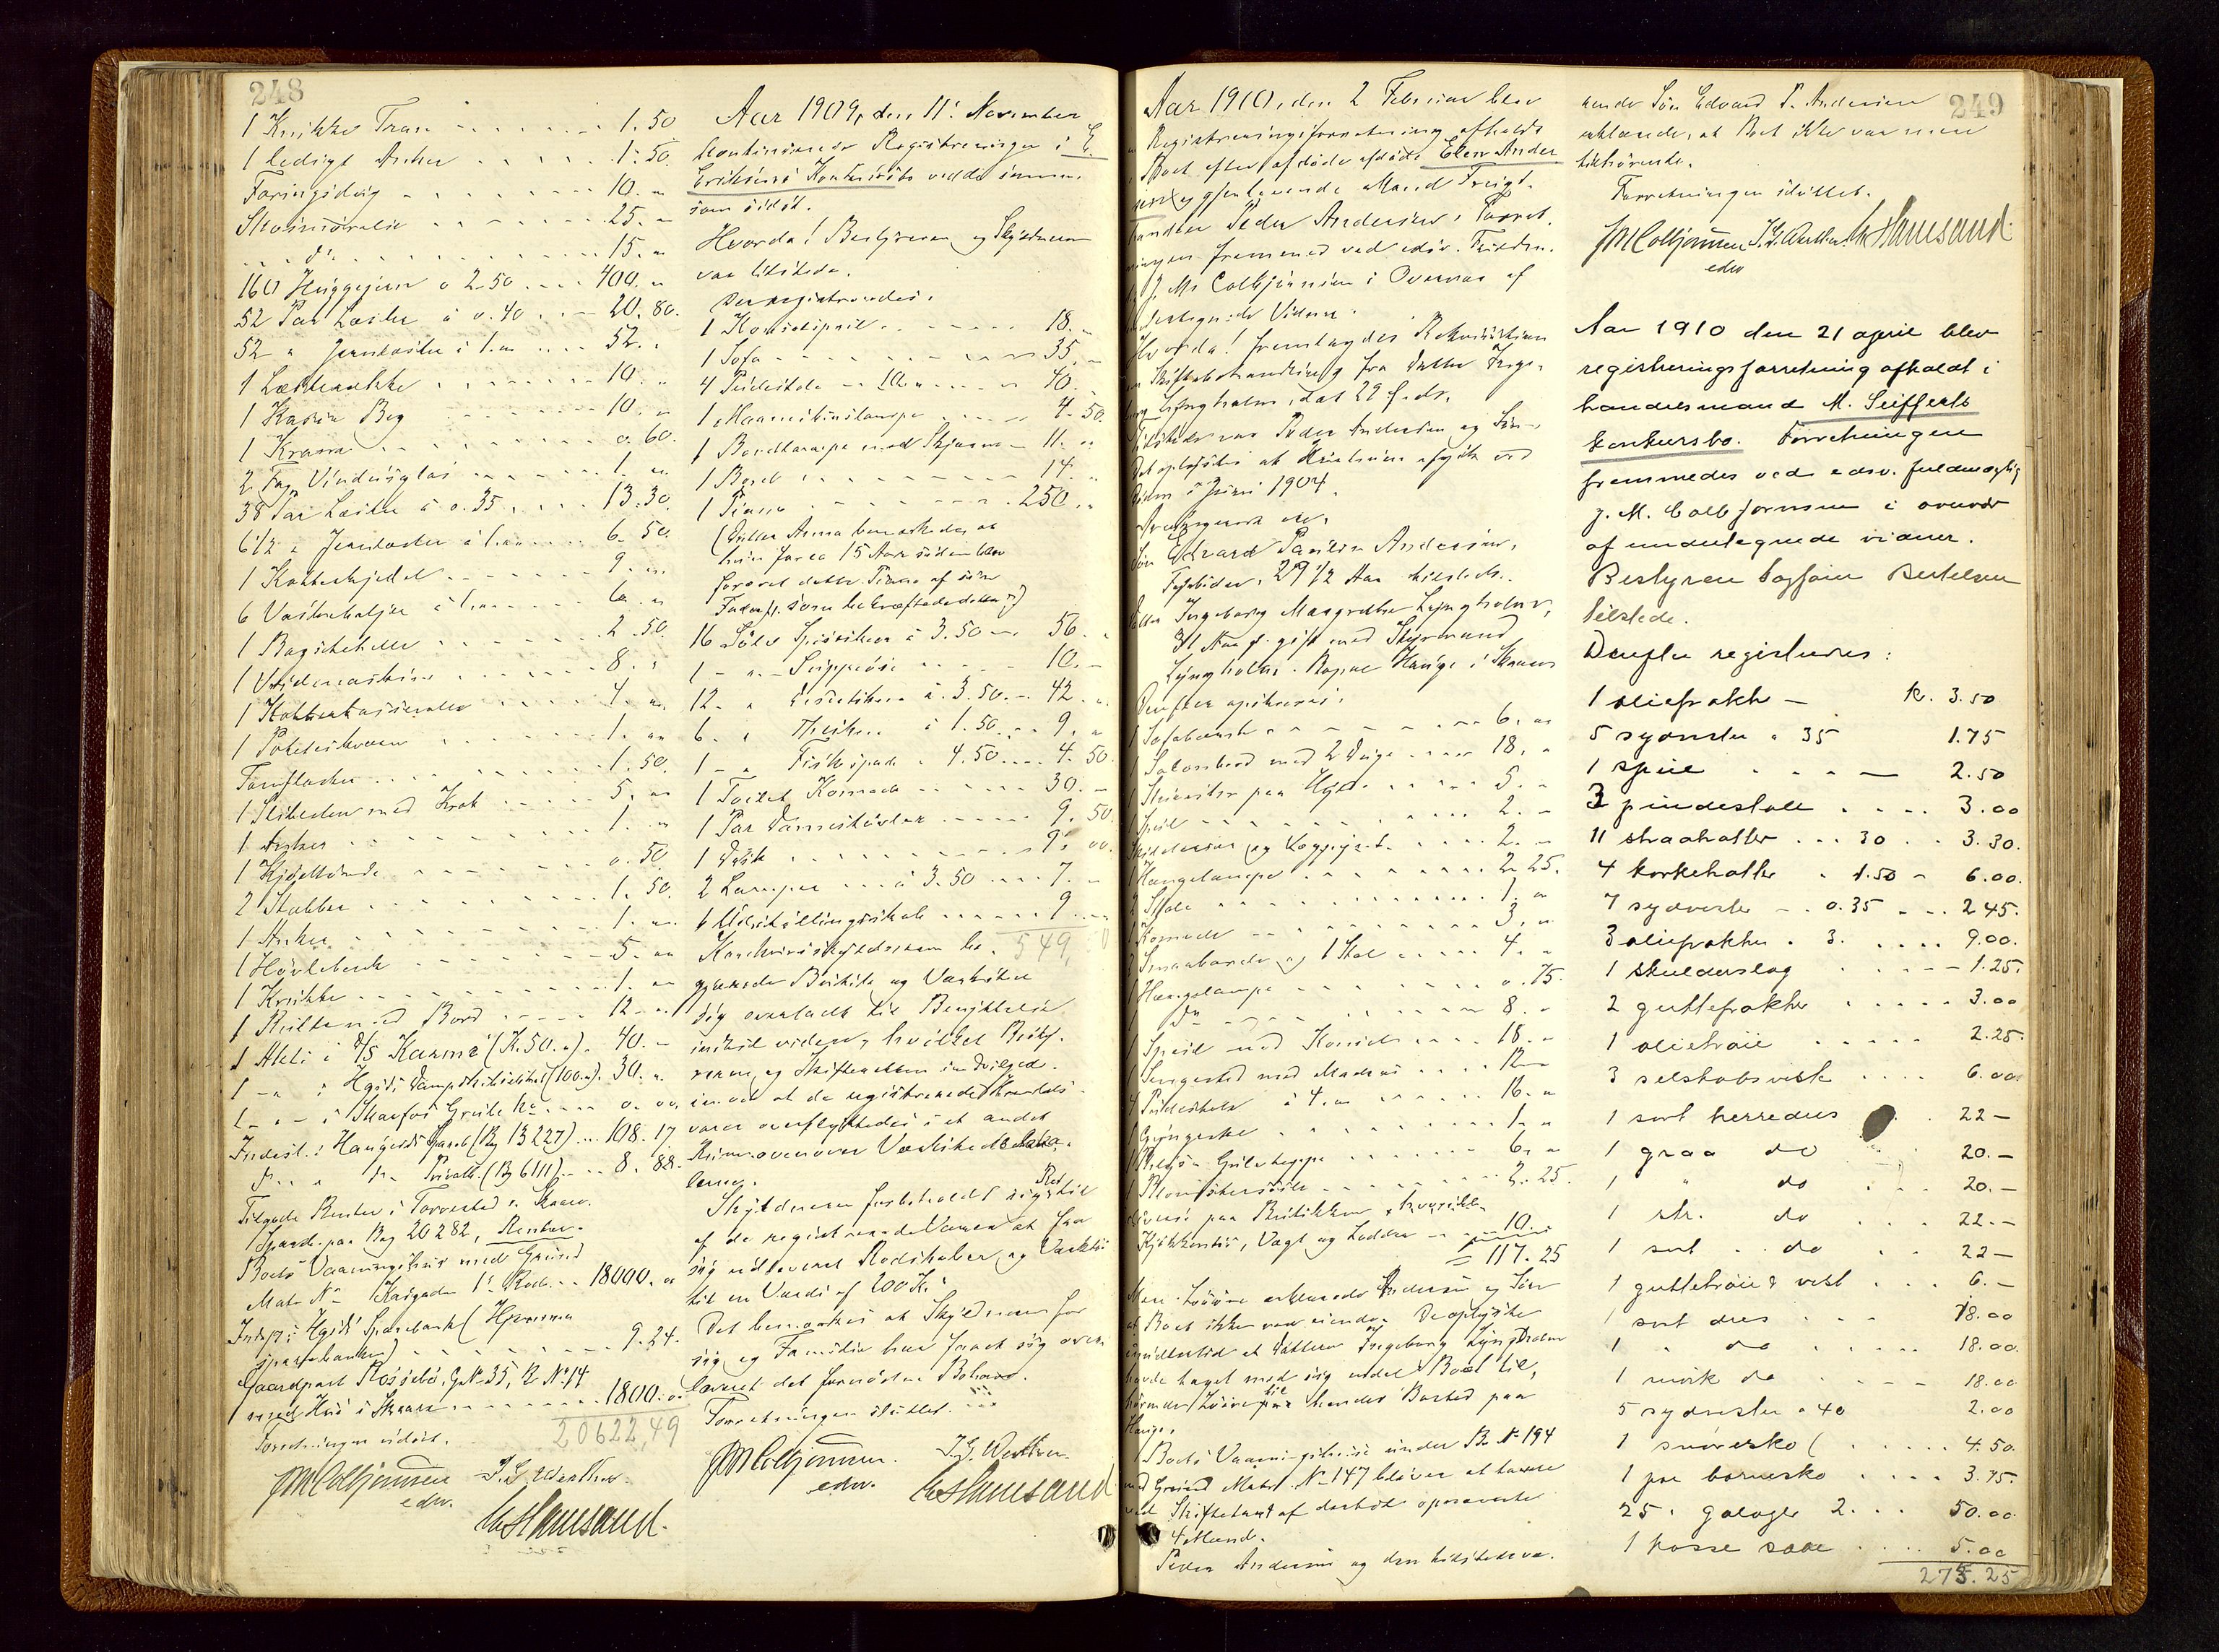 248
1 Krukke Tran 1.50
1 ledigt Anker 1.50.
Faringsdug 10. "
Skosmöralie 25. "
do 15. "
160 Huggejern a 2.50 400. "
52 Par Læster á 0.40 20.80.
52 " Jernlæster á 1." 52. "
1 Læsterække 10. "
1 Kasse Beg 10. "
1 Kran 0.60.
2 Fag Vinduesglas 1. "
38 Par Læster á 0.35 13.30.
6 1/2 " Jernlæster á 1." 6.50.
1 Kobberkjedel 9. "
6 Vaskebaljer á 1." 6. "
1 Bagstehelle 2.50.
1 Vridemaskine 8. "
1 Kobberkasserolle 4. "
1 Poteteskværn 1. "
Tomflasker 1.50.
1 Slibesten med Krak 5. "
1 Anker 1. "
1 Kjödtönde 0.50
2 Stabber 1.50.
1 Anker 1. "
1 Hövlebenk 5. "
1 Krukke 1. "
1 Rulle med Bord 12. "
1 Aktie i D/S Karmö (K. 50.") 40. "
1 " i Hgsds Dampskibsselskab (100.") 30. "
1 " " i Skarfos Grube Ko 0.00.
Indest. i Haugesds Spareb (Bg 13227) 108.17
do " do Privatb. (Bg 6111) 8.88.
Tilgode Renter i Torvestad & Skaare
Spareb. paa Bog 20282, Renter.
Boets Vaaningshus med Grund
Matr No Kaigaden 1ste Rode 18000. "
Indsp. i Hgsds Sparebank (Hjemme
sparebanken) 9.24.
Gaardpart Rossebö, G.No 35, B No 14
med Hus i Skaare 1800. "
20622,49
Forretningen sluttet.
JMColbjörnsen T. G. Werthen.
edsv.
Chr Hamsand.
Aar 1909, den 11' November
kontinueredes Registreringen i E.
Eriksens Konkursbo ved de samme
som sidst.
Hvorda! Bestyreren og Skyldneren
var tilstede.
Der registreredes:
1 Konsolspeil 18. "
1 Sofa 35. "
4 Pidestole 10. " 40. "
1 Maaneskinslampe 4.50.
1 Bordlampe med Skjærm 11. "
1 Bord 14. "
1 Piano 250. "
(Datter Anna bemærkede, at
hun for ca 15 Aar siden blev
foræret dette Piano af sin
Fader, som bekræftede dette)
16 Sölv Spiseskeer á 3.50 56. "
1 " " Suppeöse 10. "
12 " " á 3.50 42. "
6 " Theskeer á 1.50 9. "
1 " Fiskespade 4.50 4.50.
1 Toilet Komode 30. "
1 Par Damestövler 9.50.
1 Disk 9.00.
2 Lamper á 3.50 7. "
6 Udstillingsskab 9. "
549,
Konkursskyldneren be-
gjærede Butik og Værksted
sig overladt til Benyttelse
indtil videre, hvilket Besty-
reren og Skifteretten indvilged
imod at de registrerede Handels-
varer overflyttedes i et andet
Rum ovenover Værkstedloka-
lerne.
Skyldneren forbeholdt sig Ret til
af de registrerede Varer at faa
sig udleveret Redskaber og Værktöi
til en Værdi af 200 Kr.
Det bemærkes at Skyldneren for
sig og Familie har faaet sig over-
leveret det fornödne Bohave.
Forretningen sluttet.
JMColbjörnsen. T. G. Werthen.
edsv. Chr Hamsand
Aar 1910, den 2 Februar blev
Registreringsforretning afholdt
i Boet efter afdöde Elen Ander
sen og gjenlevende Mand Freigt-
handler Peder Andersen. Forret-
ningen fremmed ved edsv. Fuldm.
J. M. Colbjörnsen i Overvær af
undertegnede Vidner.
Hvorda! fremlagdes Rekvisition
om Skiftebehandling fra Datter Inge-
borg Lyngholm, dat 22 f. ds.
Tilstede var Peder Andersen og Sön
Det oplystes at Hustruen afgik ved
Döden i Juni 1904.
Arvingerne er:
Sön Edvard Paulin Andersen,
Tysvær, 29 1/2 Aar tilstede.
Datter Ingeborg Margrethe Lyngholm,
31 Aar gl. gift med Styrmand
Lyngholm. Bopæl Hauge i Skaare
Derefter opskreves:
1 Sofabænk 6. "
1 Salonbord med 2 Duge 18. "
1 Skriveskr paa Hjul 5. "
1 Speil 2. "
Skilderier og Knaggbret 2. "
1 Hængelampe 2.25.
2 Stole 1. "
1 Komode 3. "
2 Smaaborde og 1 Stol 4. "
1 Hængelampe 0.75.
1 do 8. "
1 Speil med Konsol 18. "
1 Sengested med Madras 12 "
4 Pidestole á 4. " 16. "
1 Gyngestol 1. "
1 Gulvteppe 6. "
1 Blomstersöile 2.25.
diverse paa Butikken, hvoriblandt
Kjökkentöi, Vægt og Lodder 10. "
= 117.25
Mere Lösöre erklærede Andersen og Sön
at Boet ikke var eiende. De oplyste
imidlertid at Datteren Ingeborg Lyngholm
havde taget med sig endel Boet til-
hörende Lösöre til hendes Bosted paa
Hauge.
Boets Vaaningshuse under Br. No 194
med Grund Matr. No 147 bliver at taxere
ved Skiftetaxt af dertil opnævnte
4 Mænd.
Peder Andersen og den tilstedevæ-
249
rende Sön Edvard P. Andersen
erklærede, at Boet ikke var mere
tilhörende.
Forretningen sluttet.
JMColbjörnsen T. G. Werthen Chr Hamsand
edsv
Aar 1910 den 21 april blev
registreringsforretning afholdt i
handelsmand M. Seifferts
konkursbo. Forretningen
fremmedes ved edsv. fuldmægtig
J. M. Colbjørnsen i overvær
af undertegnede vidner.
Bestyrer sagfører Bertelsen
tilstede.
Derefter registreres:
1 oliefrakk — k. 3.50
5 sydvester a 35 1.75
1 speil 2.50
3 pindestole 3.00
11 straahatter 30 3.30.
4 korkehatter 1.50 6.00.
7 sydvester 0.35 2.45.
3 oliefrakker 3. 9.00.
1 skulderslag 1.25.
2 guttefrakker 3.00
1 olietrøie 2.25.
3 selskabsvesk 6.00
1 sort herredres 22 —
1 graa do 20. —
1 " do 20. —
1 str. do 22. —
1 sort do 22 —
1 guttetrøie & vest 6. —
1 sort dres 18.00
1 " do 18.00.
1 do 18.00
5 sydvester a 40 2.00
1 snøresko ( 4.50.
1 par barnesko 3.75.
25 " galoger 2. 50.00
1 kasse sæbe 5.00
275.25